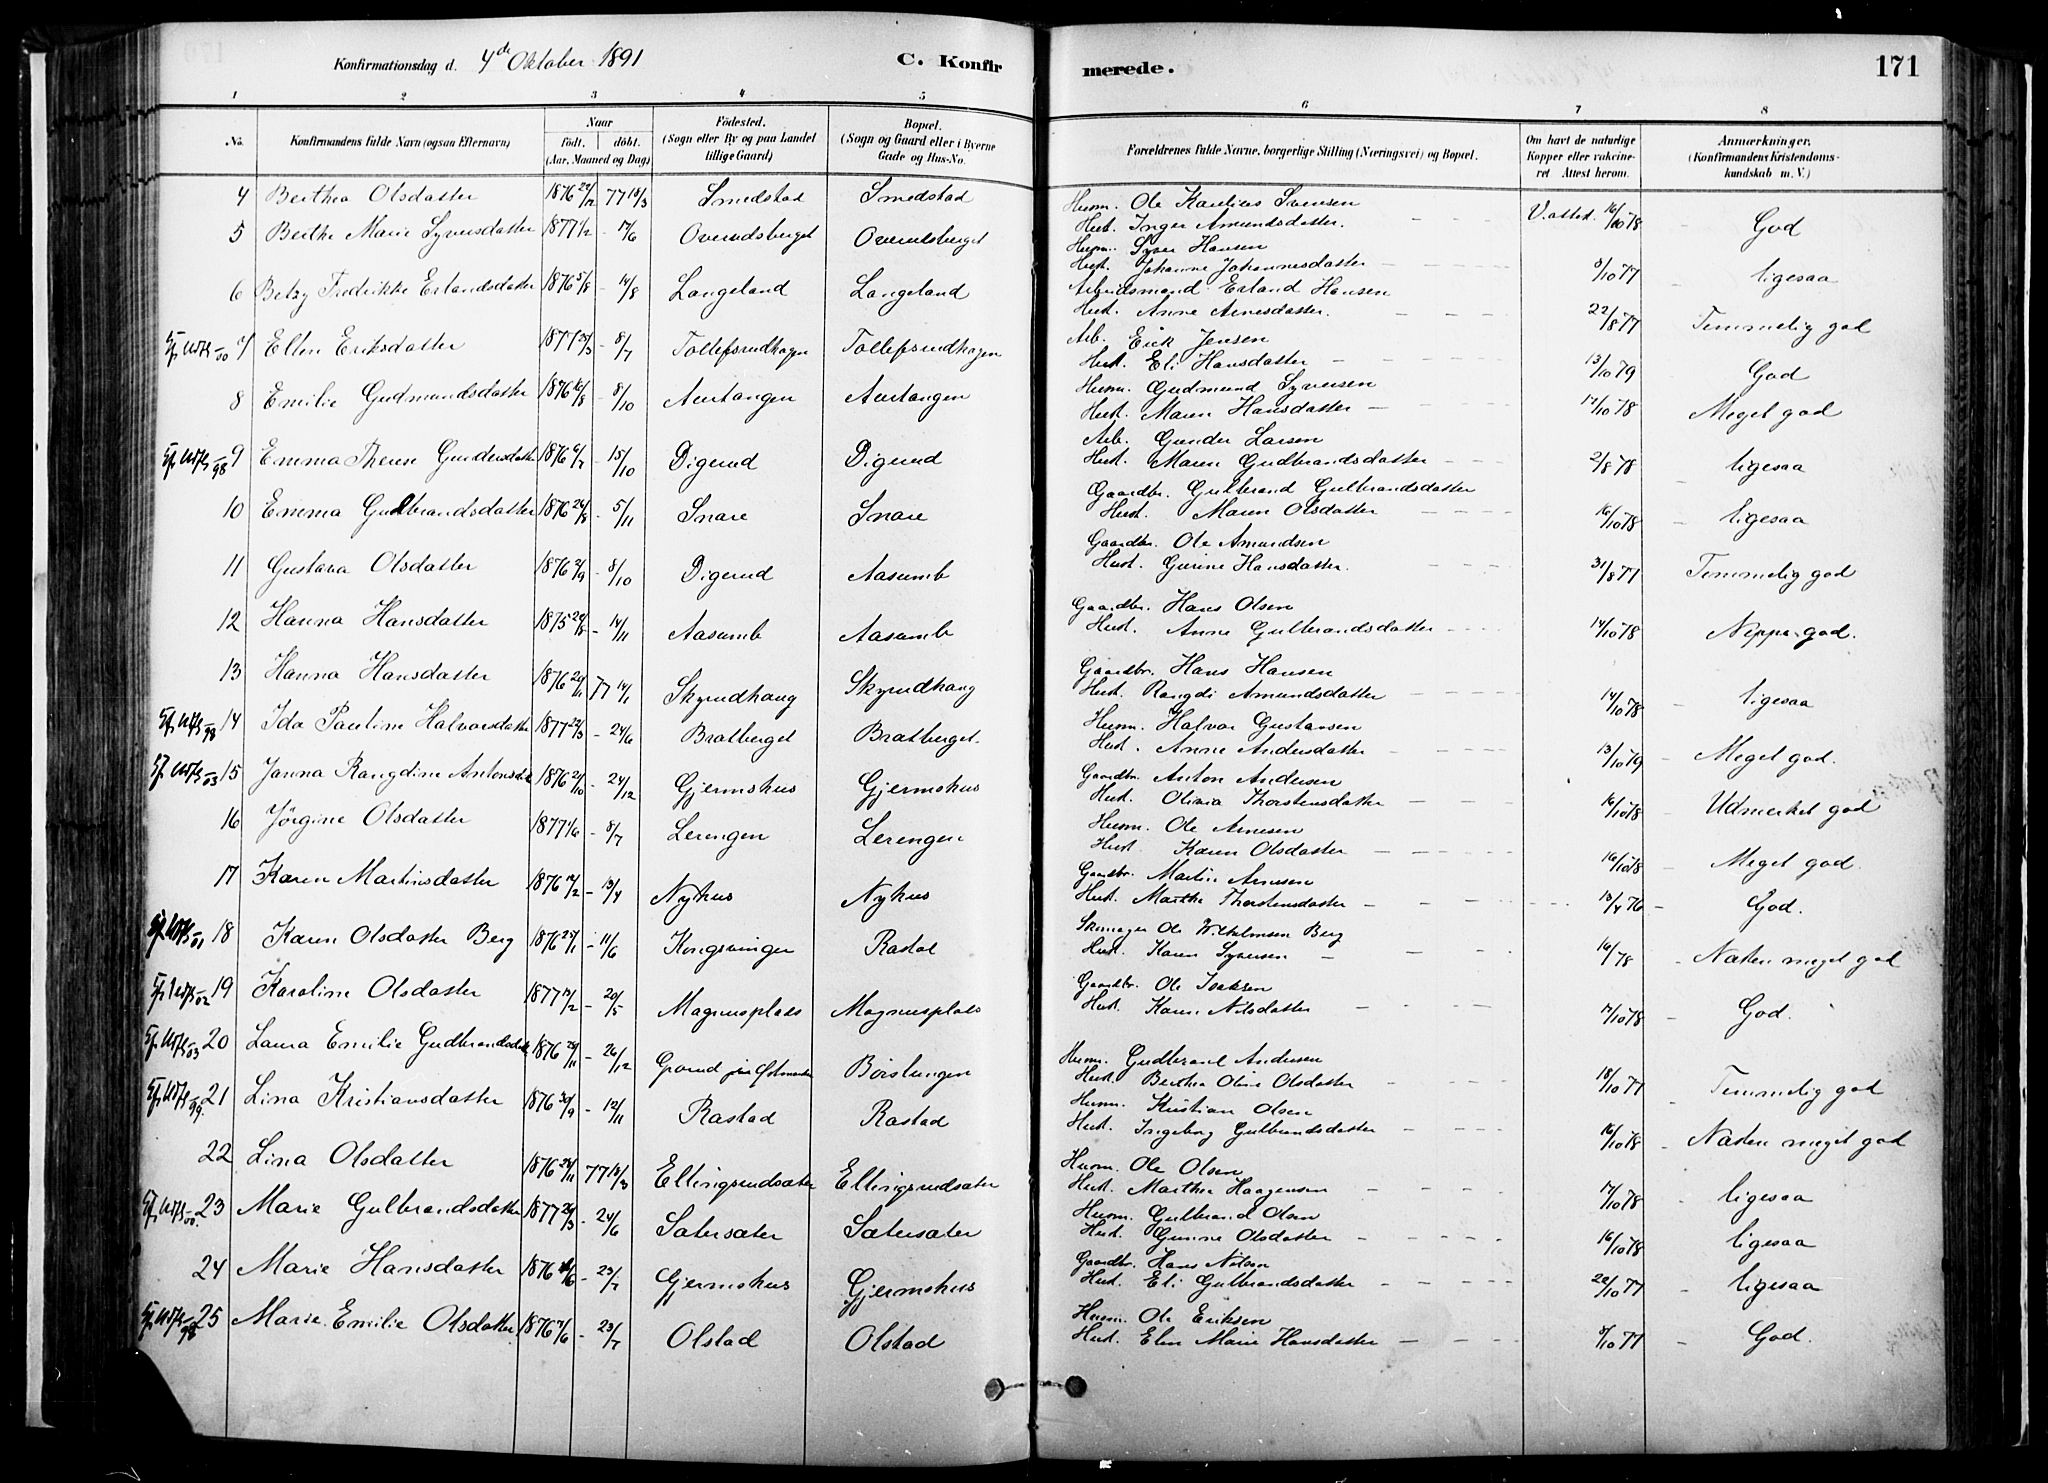 Konfirmationsdag d. 4de Oktober 1891
C. Konfirmerede.
171
1 2 3 4 5 6 7 8
No. Konfirmandens fulde Navn (ogsaa Efternavn) Naar födt. döbt. (Aar, Maaned og Dag) Födested. (Sogn eller By og paa Landet tillige Gaard) Bopæl. (Sogn og Gaard eller i Byerne Gade og Hus-No. Forældrenes fulde Navne, borgerlige Stilling (Næringsvei) og Bopæl. Om havt de naturlige Kopper eller vakcineret Attest herom. Anmærkninger. (Konfirmandens Kristendomskundskab m. V.)
4 Berthea Olsdatter 1876 77 18/3 Smedstad Smedstad Husm. Ole Svensen
Hust. Inger Amundsdatter. V. attest. 16/10 78 God
5 Berthe Marie Syversdatter 1877 1/2 - 17/6 Overudsberget Overudsberget Husm. Syver Hansen
Hust. Johanne Johannesdatter 8/10 77 ligesaa
6 Betzy Fredrikke Erlandsdatter 1876 5/8 - 14/8 Langeland Langeland Arbeidsmand Erland Hansen
Hust. Anne Arnesdatter. 22/8 77 Temmelig god
7 Ellen Eriksdatter 1877 - 8/7 Tollefsrudhagen Tollefsrudhagen Arb. Erik Jensen
Hust. Eli Hansdatter 13/10 79 God
8 Emilie Gudmundsdatter 1876 - 8/10 Aurtangen Aurtangen Husm. Gudmund Syversen
Hust. Maren Hansdatter 17/10 78 Meget god
9 Emma Therese Gundersdatter 1876 - 15/10 Digerud Digerud Arb. Gunder Larsen
Hust. Maren Gudbrandsdatter 2/8 78 ligesaa
10 Emma Gulbrandsdatter 1876 - 5/11 Snare Snare Gaardbr. Gulbrand Gulbrandsdatter
Hust. Maren Olsdatter 16/10 78 ligesaa
11 Gustava Olsdatter 1876 - 8/10 Digerud Aasumb Gaardbr. Ole Amundsen
Hust. Gurine Hansdatter. 31/8 77 Temmelig god
12 Hanna Hansdatter 1875 - 14/11 Aasumb Aasumb Gaardbr. Hans Olsen
Hust. Anne Gulbrandsdatter 14/10 78 Neppe god.
13 Hanna Hansdatter 1876 77 14/1 Skyrudhaug Skyrudhaug Gaardbr. Hans Hansen
Hust. Rangdi Amundsdatter 14/10 78 ligesaa
14 Ida Pauline Halvorsdatter 1877 - 24/6 Bratberget Bratberget. Husm. Halvor Gustavsen
Hust. Anne Andersdatter 13/10 79 Meget god.
15 Janna Rangdine Antonsdat 1876 - 24/12 Gjermshus Gjermshus Gaardbr. Anton Andersen
Hust. Olivia Thorstensdatter 16/10 78 Udmerket god
16 Jörgine Olsdatter 1877 - 8/7 Lerengen Lerengen Husm. Ole Arnesen
Hust. Karen Olsdatter 16/10 78 Meget god.
17 Karen Martinsdatter 1876 - 13/4 Nyhus Nyhus Gaardbr. Martin Arnesen
Hust. Marthe Thorstensdatter 13/4 76 God.
18 Karen Olsdatter Berg 1876 - 11/6 Kongsvinger Rastad Skomager Ole Vilhelmsen Berg
Hust. Karen Syversen 16/78 Næsten meget god
19 Karoline Olsdatter 1877 - 20/5 Magnusplads Magnusplads Gaardbr. Ole Isaksen
Hust. Karen Nilsdatter 17/10 78 God.
20 Laura Emilie Gudbrandsdat 1876 - 26/12 Börslungen Husm. Gudbrand Andersen
Hust. Berthea Oline Olsdatter 18/10 77 Temmelig god
21 Lina Kristiansdatter 1876 30/9 - 12/11 Rastad Rastad Husm. Kristian Olsen
Hust. Ingeborg Gulbrandsdatter 16/10 78 Næsten meget god
22 Lina Olsdatter 1876 77 18/3 Ellingsrudsæter Ellingsrudsæter Husm. Ole Olsen
Hust. Marthea Haagensen 17/10 78 ligesaa
23 Marie Gulbrandsdatter 1877 - 24/6 Sætersæter Sætersæter Husm. Gulbrand Olsen
Hust. Gurine Olsdatter 16/10 78 ligesaa
24 Marie Hansdatter 1876 - 23/7 Gjermshus Gjermshus Gaardbr. Hans Nilsen
Hust. Eli Gulbrandsdatter 22/10 77 ligesaa
25 Marie Emilie Olsdatter 1876 - 23/7 Olstad Olstad Husm. Ole Eriksen
Hust. Elen Marie Hansdatter 8/10 77 God.